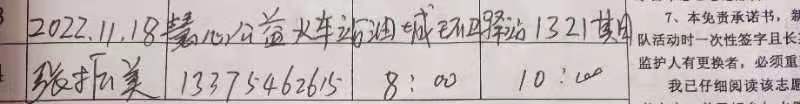 2022.11.18 慧心公益火车站油城环卫驿站 1321 其田
张振美 13375462615 8:00 10:00
7、本免责承诺书，新
队活动时一次性签字且长
监护人有更换者，必须重
我已仔细阅读该志愿